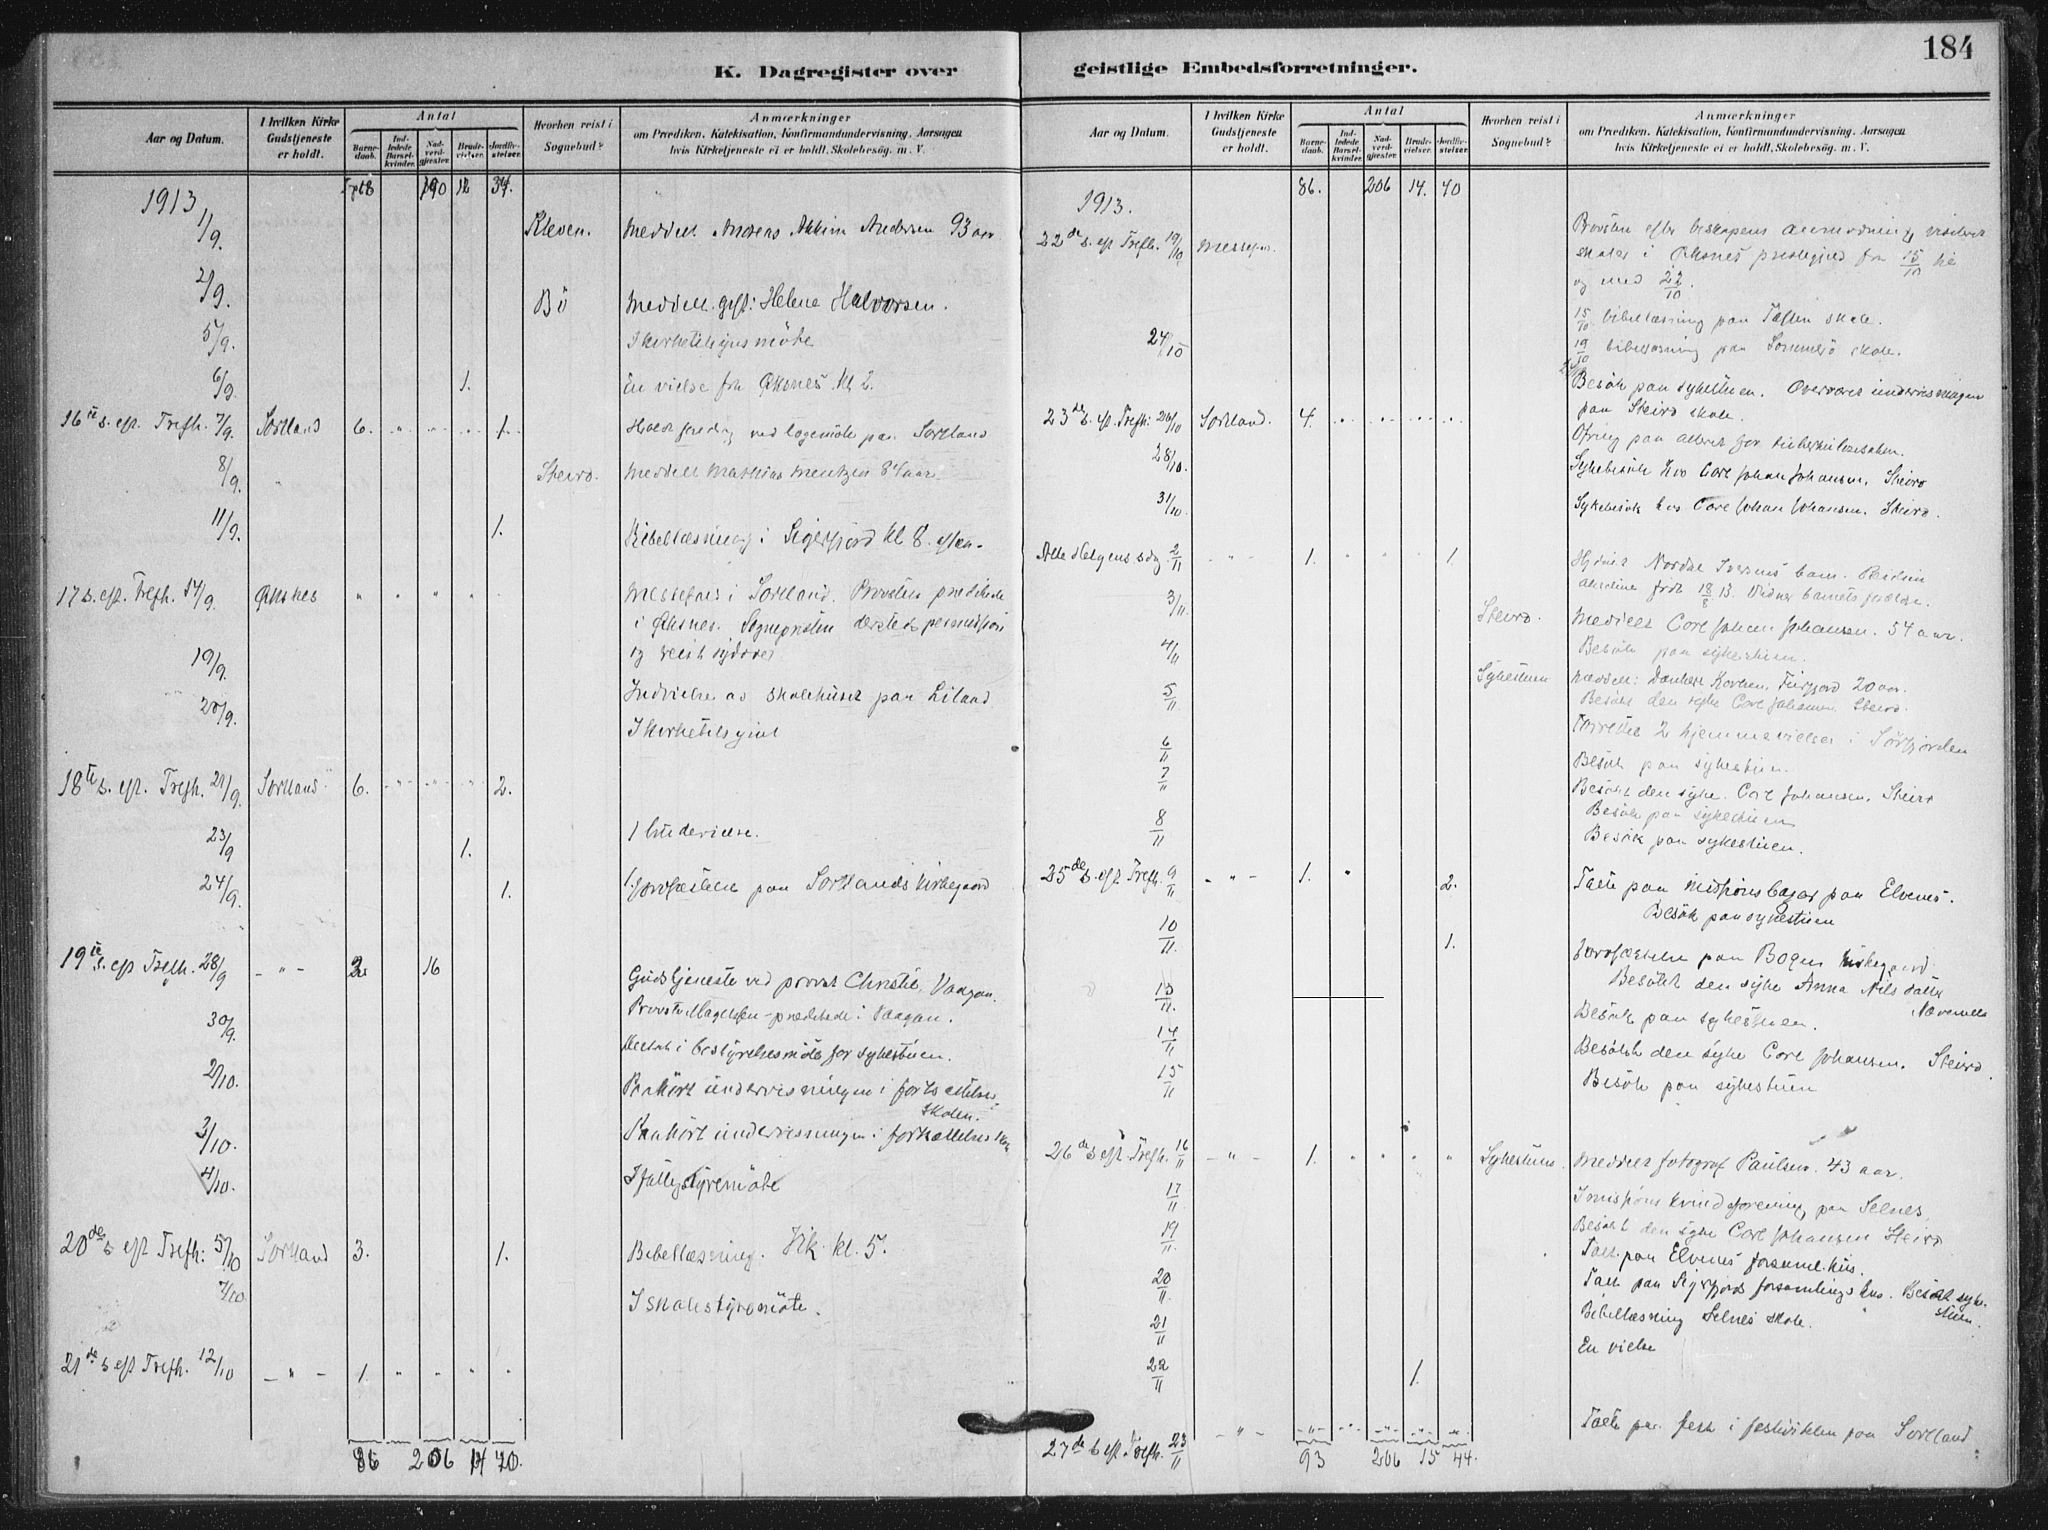 184
K. Dagregister over geistlige Embedsforretninger.
Aar og Datum.
I hvilken Kirke Gudstjeneste er holdt.
Antal
Barnedaab.
Indledede Barselkvinder.
Nadverdgjester.
Brudevielser.
Jordfæstelser.
Hvorhen reist i Sognebud?
Anmærkninger
om Prædiken, Katekisation, Konfirmandundervisning. Aarsagen
hvis Kirketjeneste ei er holdt. Skolebesøg. m. V.
1913 68 190 12 34.
1/9. Kleven. Meddelt Andreas Andersen 93 aar
2/9. Bö Meddelt gift: Helene Halvorsen.
5/9. I kirketilsynsmöte
6/9. 1. En vielse fra Öksnes kl 2.
16te s. eft. Trefh. 7/9. Sortland 6. " " " 1. Holdt foredrag ved logemöte paa Sortland
8/9. " Steiro. Meddelt Mathias Mentzen 84 aar.
11/9. 1. Bibellæsning i Sigerfjord kl 8. eften.
17 s. eft. Trefh. 14/9. Öksnes " " " " Messefri i Sortland. Provsten prædikede
i Öksnes. Sognepresten permission
og reist sydover
19/9. Indvielse av skolehuset paa Liland
20/9. I kirketilsynet
18te s. eft. Trefh. 21/9. Sortland 6. " " " 2.
23/9 1. 1 brudevielse.
24/9. 1. 1 jordfæstelse paa Sortlands kirkegaard
19te s. eft Trefh. 28/9 - " - 2. 16 Gudstjeneste ved provst Christie, Vaagan.
Provst Magelssen prædikede i Vaagan.
30/9. Deltat i bestyrelsesmöte for sykestuen.
2/10. Paahört undervisningen i fortsættelses
skolen.
3/10. Paahört undervisningen i fortsættelsesskolen
4/10. I fattigstyremöte
20de s eft Trefh: 5/10 Sortland 3. 1. Bibellæsning. Vik kl. 5.
7/10 I skolestyremöte.
21de s eft Trefh. 12/10 - " - 1. " " " "
86 206 14 70.
Aar og Datum.
I hvilken Kirke Gudstjeneste er holdt.
Antal
Barnedaab.
Indledede Barselkvinder.
Nadverdgjester.
Brudevielser.
Jordfæstelser.
Hvorhen reist i Sognebud?
Anmærkninger
om Prædiken, Katekisation, Konfirmandundervisning. Aarsagen
hvis Kirketjeneste ei er holdt, Skolebesög. m. V.
1913. 86. 206 14. 40
22de s. eft Trefh. 19/10 Messefri. Provsten efter biskopens anmodning visiteret
skoler i Öksnes prestegjeld fra 15/10 til
og med 22/10.
15/10. bibellæsning paa Tæften skole.
19/10 bibellæsning paa Sommerö skole.
24/10 Besök paa sykestuen. Overværet undervisningen
paa Steiro skole.
23de s. eft. Trefh: 26/10 Sortland. 4. " " " " Ofring paa alteret for tuberkulosesaken.
28/10. Sykebesök hos Carl Johan Johansen. Steiro
31/10 Sykebesök hos Carl Johan Johansen. Steiro.
Alle Helgens dag 2/11 - " - 1. " " " 1. Nordal Iversens barn.
födt 18/8 13.
3/11. Steiro. Meddelt Carl Johan Johansen. 54 aar.
4/11 Besök paa sykestuen.
5/11. Sykestuen Meddelt: 20 aar.
Besökt den syke Carl Johansen Steiro.
6/11 Forrettet 2 hjemmevielser i Sörfjorden
Besök paa sykestuen.
7/11 Besökt den syke. Carl Johansen. Steiro
Besök paa sykestuen
8/11 Besök paa sykestuen.
25de s. eft Trefh. 9/11 - " - 1. " 2. Talte paa missionsbasar paa Elvenes.
Besök paa sykestuen
10/11. 1. Jordfæstelse paa Bogen kirkegaard
Besökt den syke Anna Nilsdatter
13/11. Besök paa sykestuen.
14/11 Besökt den syke Carl Johansen. Steiro.
15/11 Besök paa sykestuen
26de s eft. Trefh. 16/11 - " - 1. " " " " Sykestuen. Meddelt fotograf Paulsen. 43 aar.
17/11 I missions kvindeforening paa Selnes
Besökt den syke Carl Johansen Steiro
19/11. Talt paa Elvenes forsaml.hus.
20/11 Talt paa Sigerfjord forsamlingshus. Besökt syke-
stuen.
21/11 Bibellæsning Selnes skole.
22/11 1. En vielse
27de s eft Trefh. 23/11 - " - Talte paa fest i festivalen paa Sortland
93 206 15 44.